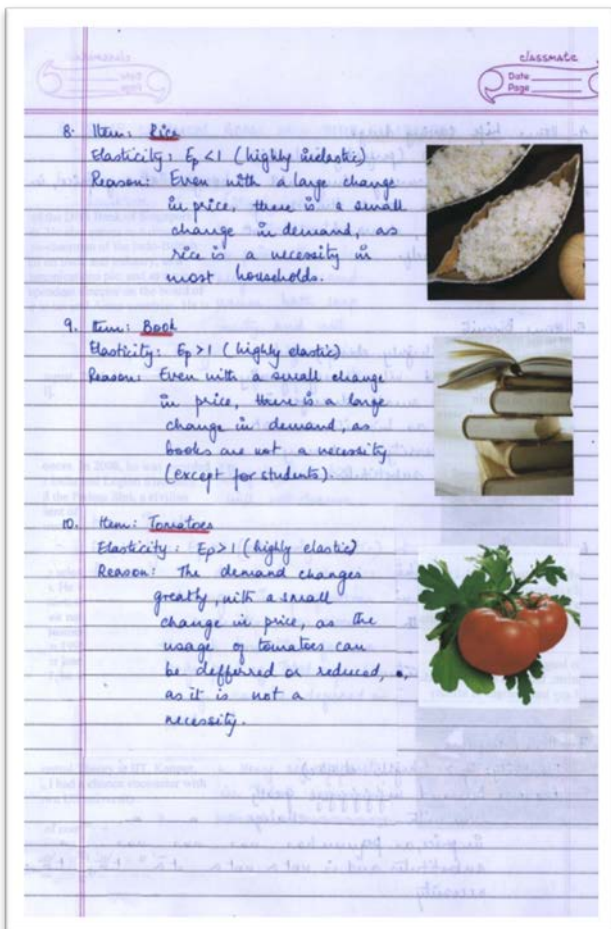 classmate
Date
Page
8. Item: Rice
Elasticity: Ep <1 (highly inelastic)
Reason: Even with a large change
in price, there is a small
change in demand, as
rice is a necessity in
most households.
9. Item: Book
Elasticity: Ep >1 (highly elastic)
Reason: Even with a small change
in price, there is a large
change in demand, as
books are not a necessity
(except for students).
10. Item: Tomatoes
Elasticity: Ep >1 (highly elastic)
Reason: The demand changes
greatly, with a small
change in price, as the
usage of tomatoes can
be defferred or reduced,
as it is not a
necessity.